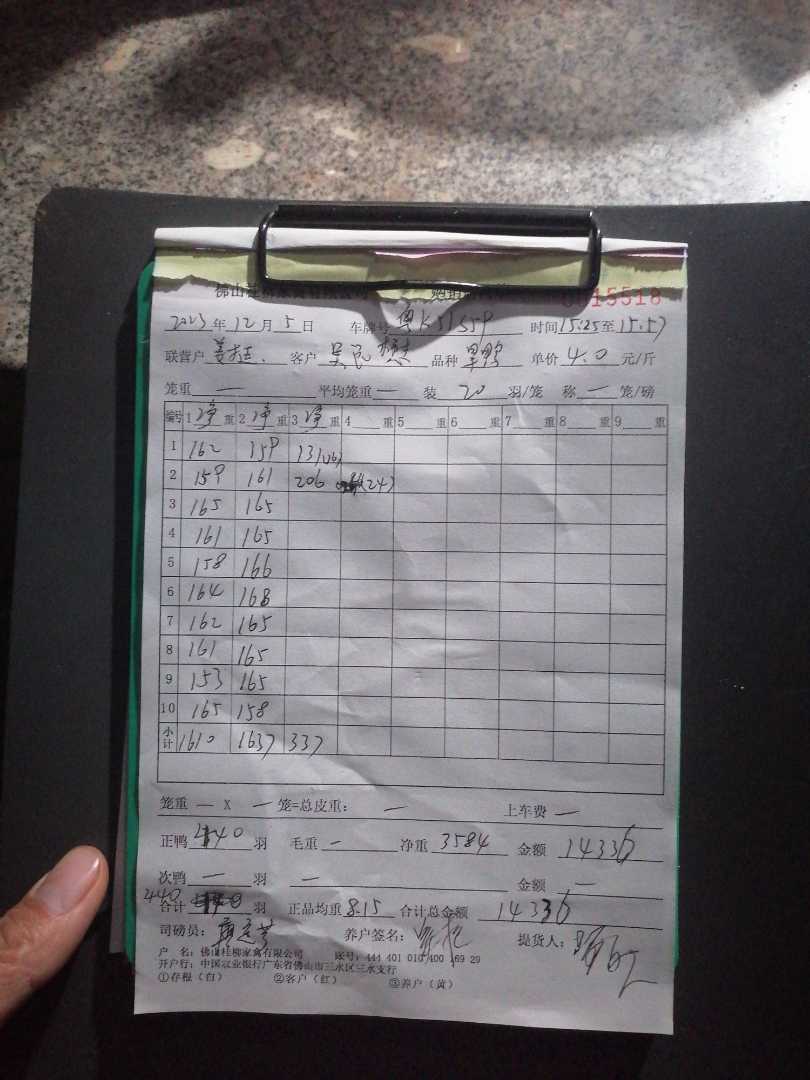 佛山桂柳家禽有限公司 购销 0015518
2023年12月5日 车牌号 粤K51S59 时间15:25至15:57
联营户 客户 吴 品种 单价4.0元/斤
笼重 — 平均笼重 — 装 20 羽/笼 称 — 笼/磅
编号 1 净 重 2 净 重 3 净 重 4 重 5 重 6 重 7 重 8 重 9 重
1 162 159 131
2 159 161 206 (24)
3 165 165
4 161 165
5 158 166
6 164 168
7 162 165
8 161 165
9 153 165
10 165 158
小计 1610 1637 337
笼重 — X — 笼=总皮重: — 上车费 —
正鸭 440 羽 毛重 — 净重 3584 金额 14336
次鸭 — 羽 — 金额 —
合计 440 羽 正品均重 8.15 合计总金额 14336
司磅员: 养户签名: 提货人:
户 名: 佛山桂柳家禽有限公司 账号: 444 401 010 400 169 29
开户行: 中国农业银行广东省佛山市三水区三水支行
①存根(白) ②客户(红) ③养户(黄)